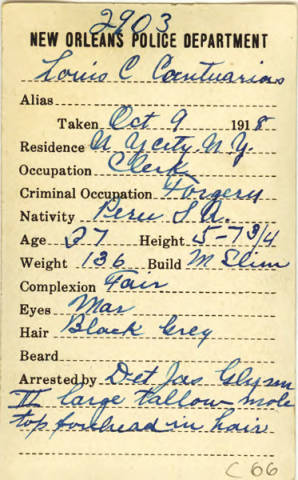 2903
NEW ORLEANS POLICE DEPARTMENT
Louis C Cantuarias
Alias
Taken Oct 9 1918
Residence N Y City N. Y.
Occupation Clerk
Criminal Occupation Forgery
Nativity Peru S A.
Age 27 Height 5-7 3/4
Weight 136 Build M Slim
Complexion Fair
Eyes Mar
Hair Black Grey
Beard
Arrested by Det Jas Glynn
III large tallow mole
top forehead in hair
C 66